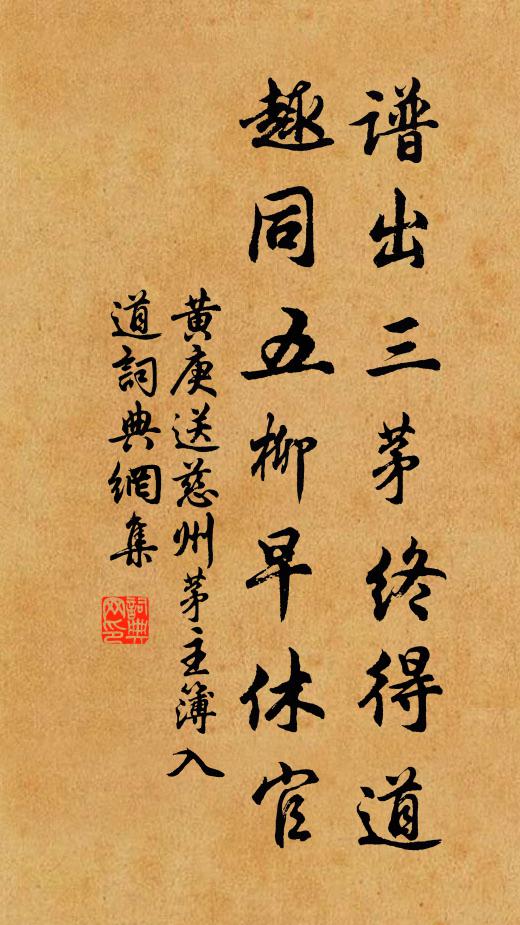 谱出三茅终得道
趣同五柳早休官
黄庚送慈州茅主簿入
道詞典網集
詞典
网印